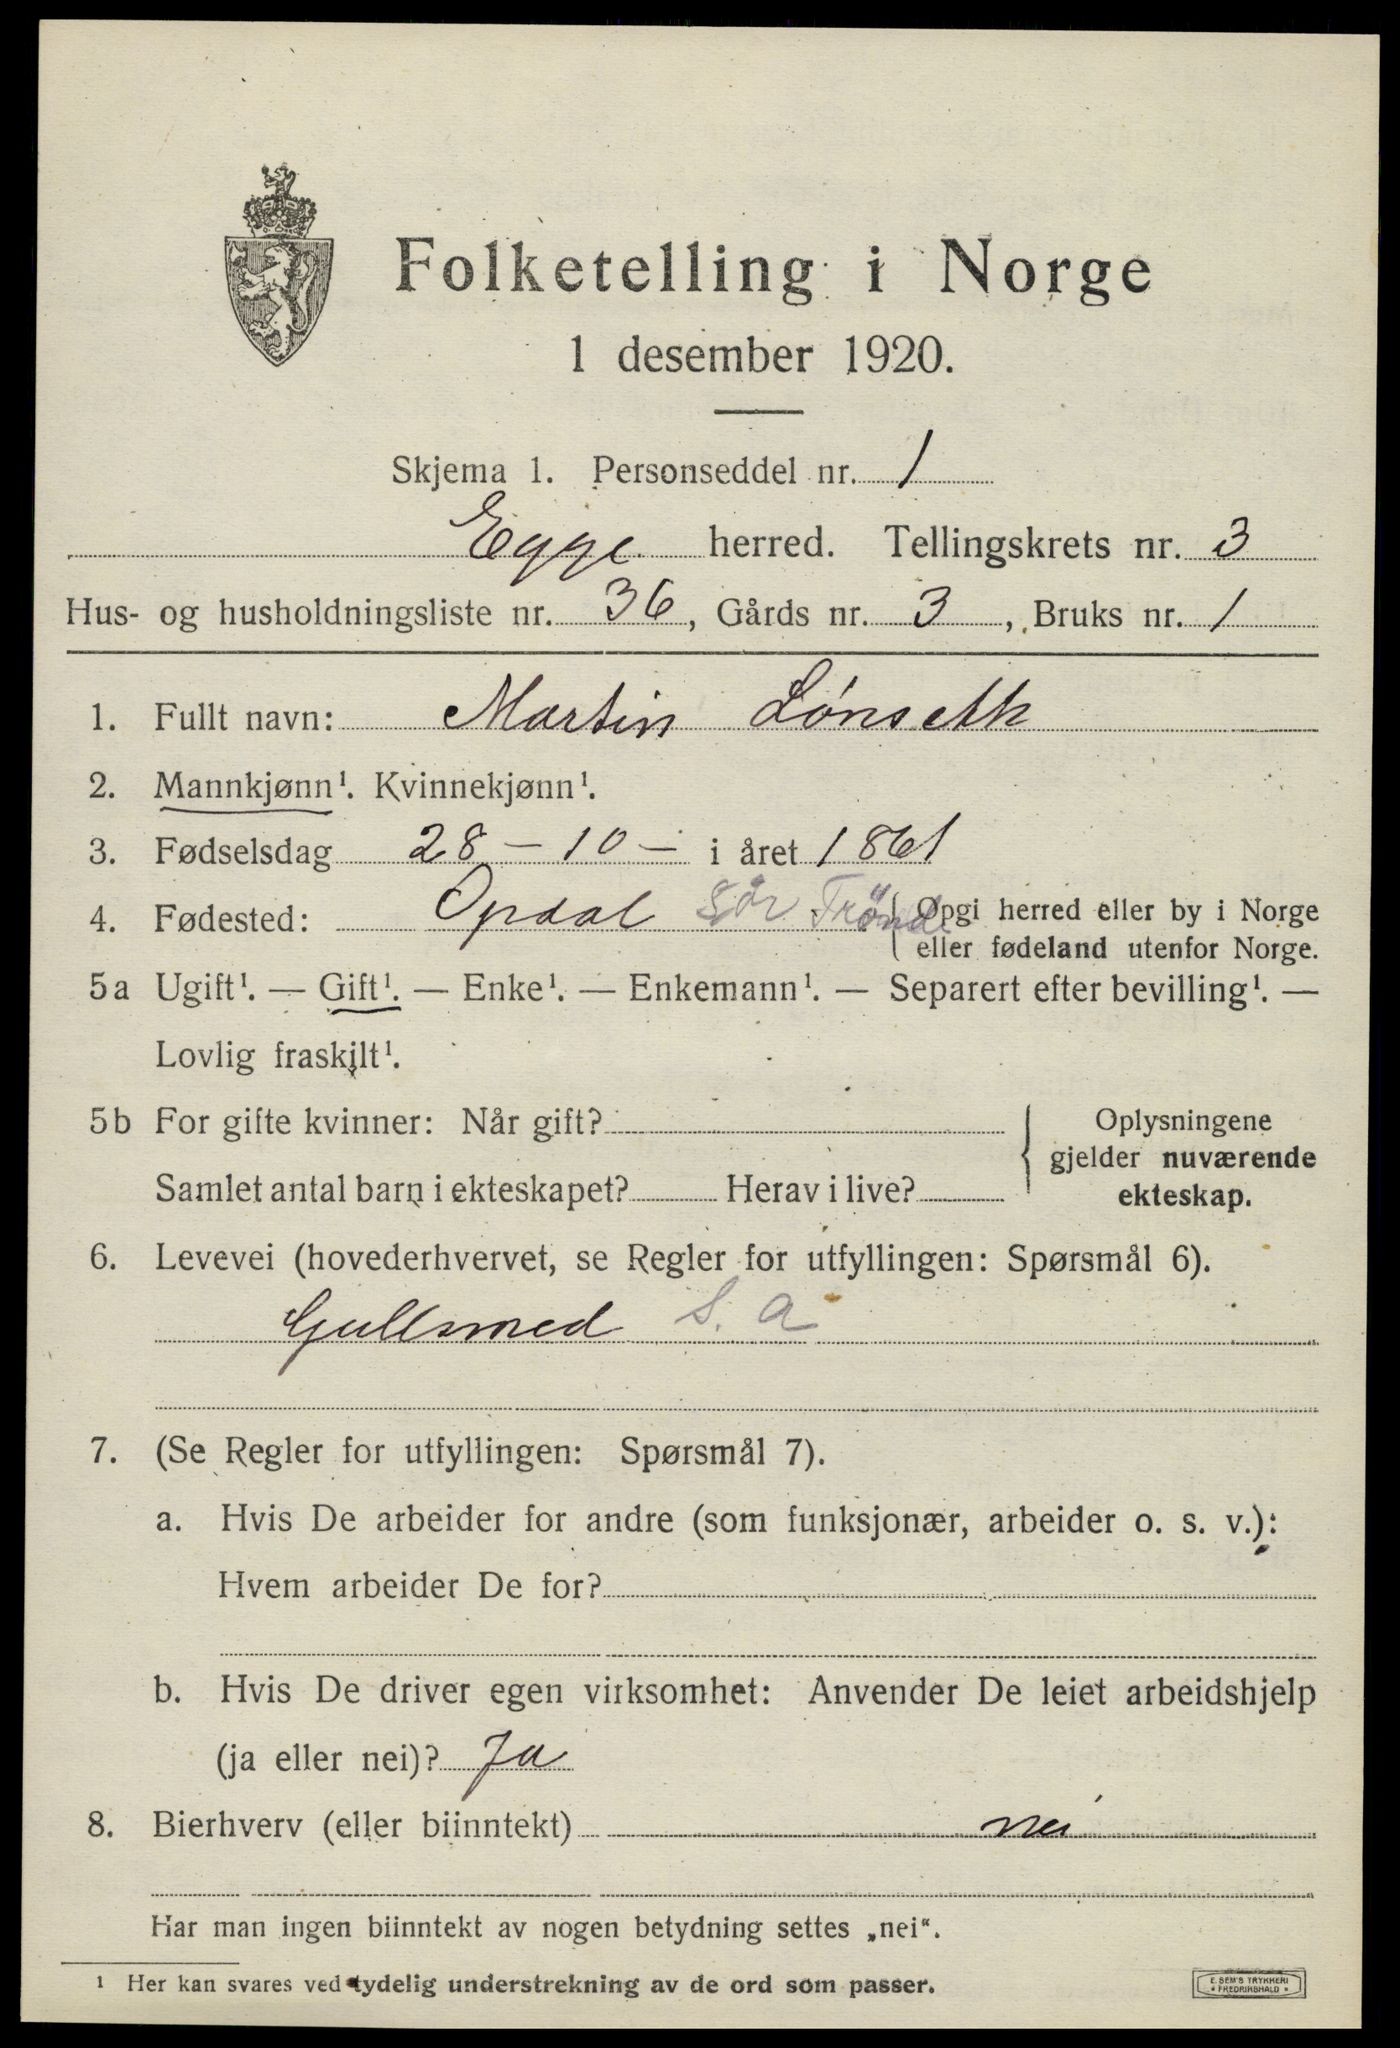 Folketelling i Norge
1 desember 1920.
Skjema 1. Personseddel nr. 1
Egge herred. Tellingskrets nr. 3
Hus- og husholdningsliste nr. 36, Gårds nr. 3, Bruks nr. 1
1. Fullt navn: Martin Lønseth
2. Mannkjønn¹. Kvinnekjønn¹.
3. Fødselsdag 28 – 10 – i året 1861
4. Fødested: Opdal Sör Trönd (Opgi herred eller by i Norge
eller fødeland utenfor Norge.
5a Ugift¹. — Gift¹. — Enke¹. — Enkemann¹. — Separert efter bevilling¹. —
Lovlig fraskilt¹.
5b For gifte kvinner: Når gift?
Samlet antal barn i ekteskapet? Herav i live?
Oplysningene
gjelder nuværende
ekteskap.
6. Levevei (hovederhvervet, se Regler for utfyllingen: Spørsmål 6).
Gullsmed S. a
7. (Se Regler for utfyllingen: Spørsmål 7).
a. Hvis De arbeider for andre (som funksjonær, arbeider o. s. v.):
Hvem arbeider De for?
b. Hvis De driver egen virksomhet: Anvender De leiet arbeidshjelp
(ja eller nei)? Ja
8. Bierhverv (eller biinntekt) nei
Har man ingen biinntekt av nogen betydning settes „nei“.
¹ Her kan svares ved tydelig understrekning av de ord som passer.
E. SEM'S TRYKKERI
* FREDRIKSHALD *